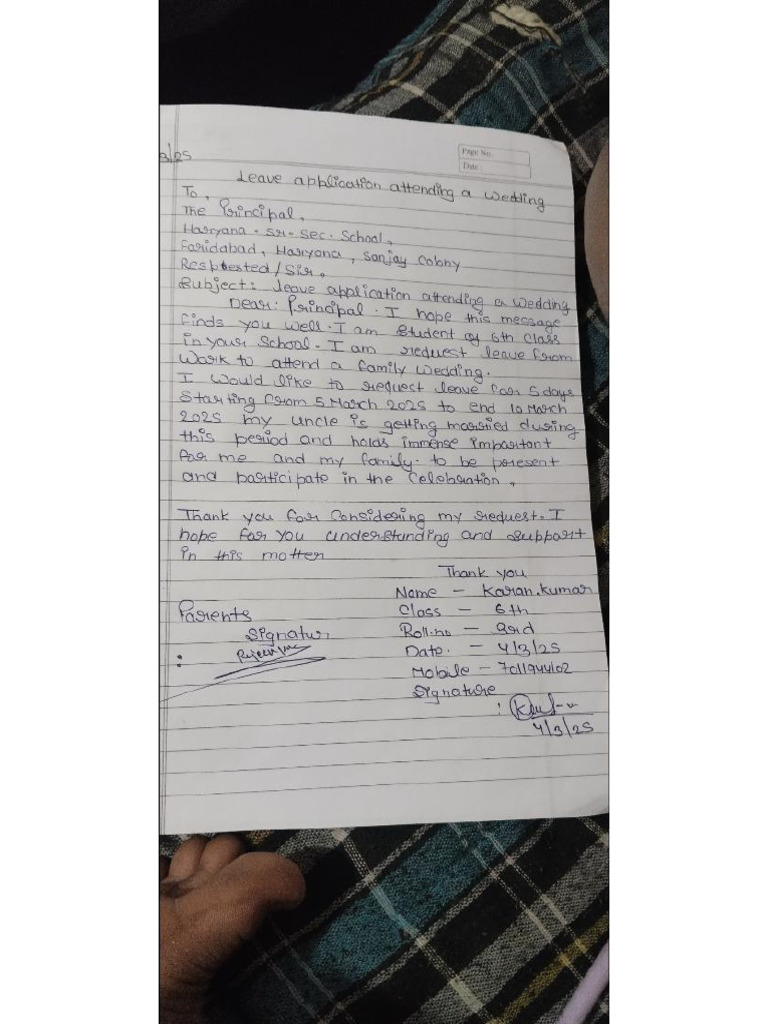 3/25
Page No.
Date:
Leave application attending a wedding
To,
The Principal,
Haryana - sr - sec - School,
Faridabad, Haryana, Sanjay Colony
Respected/Sir,
Subject: leave application attending a wedding
Dear: Principal. I hope this message
finds you well. I am Student of 6th class
in your School. I am request leave from
Work to attend a family wedding.
I would like to request leave for 5 days
Starting from 5 March 2025 to end 10 March
2025 my uncle is getting married during
this period and holds immense important
for me and my family. to be present
and participate in the Celebration.
Thank you for Considering my request. I
hope for you understanding and support
in this motter
Thank you
Name - Karan.kumar
Parents
Class - 6th
Signatur
Roll.no - 3rd
:
Date. - 4/3/25
Mobile - 7011944102
Signature
:
4/3/25